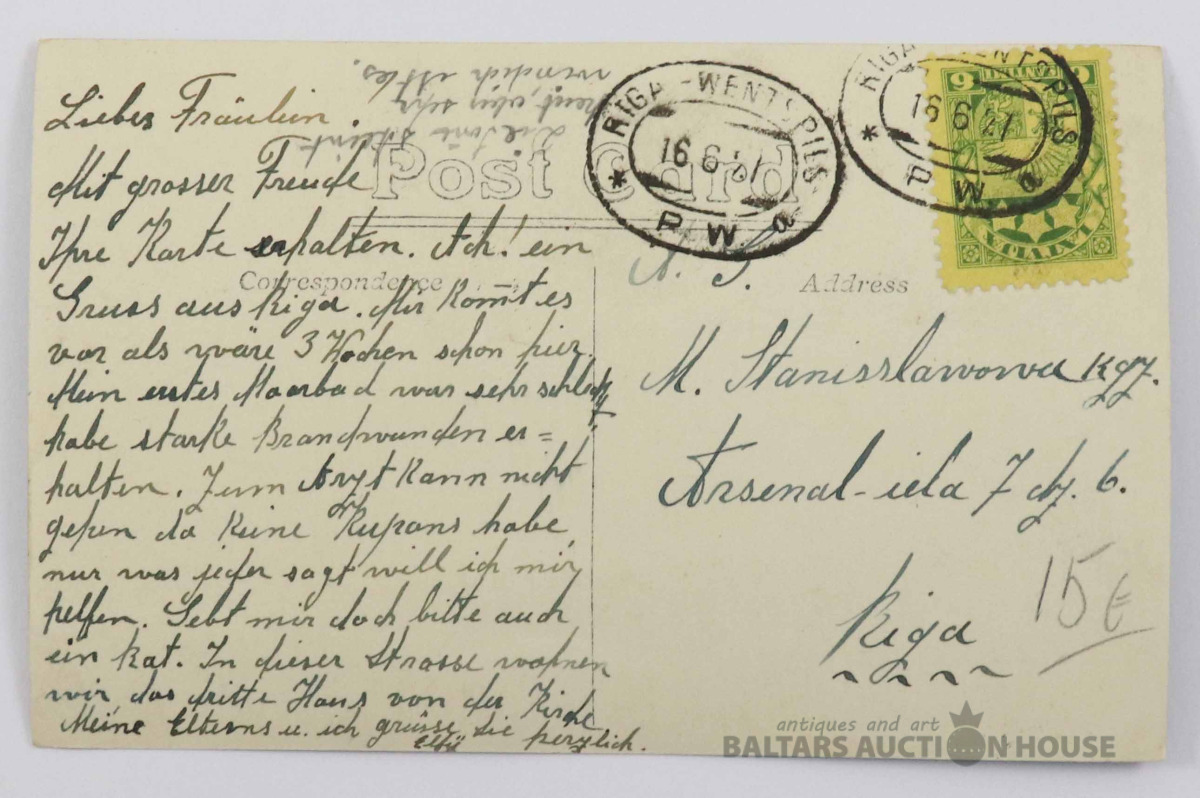 Liebes Fräulein.
Mit grosser Freude
Ihre Karte erhalten. Ach! ein
Gruss aus Riga. Mir kommt es
vor als wäre 3 Wochen schon hier.
Mein erstes Moorbad war sehr schlecht,
habe starke Brandwunden er=
halten. Zum Arzt kann nicht
gehen da keine Kupons habe,
nur was jeder sagt will ich mir
helfen. Gebt mir doch bitte auch
ein Rat. In dieser Strasse wohnen
wir das dritte Haus von der Kirche
Meine Elterns u. ich grüsse Sie herzlich.
Elfi
sehr
Post Card
Correspondence
Address
RIGA-WENTSPILS
16 6 27
* P W a
RIGA-WENTSPILS
16 6 27
* P W a
6 SANTIMI 6
LATVIJA
M. Stanisslawowa kgz.
Arsenal-iela 7 dz. 6.
Riga
15 €
antiques and art
BALTARS AUCTION HOUSE